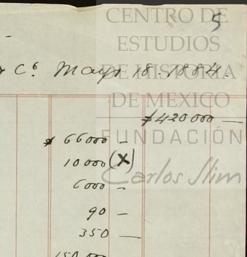 CENTRO DE
5
ESTUDIOS
Cº. Mayo 18. 1884.
DE HISTORIA
DE MEXICO
$420000 —
$ 66000 —
FUNDACIÓN
10000 (X)
Carlos Slim
6000 —
90 —
350 —